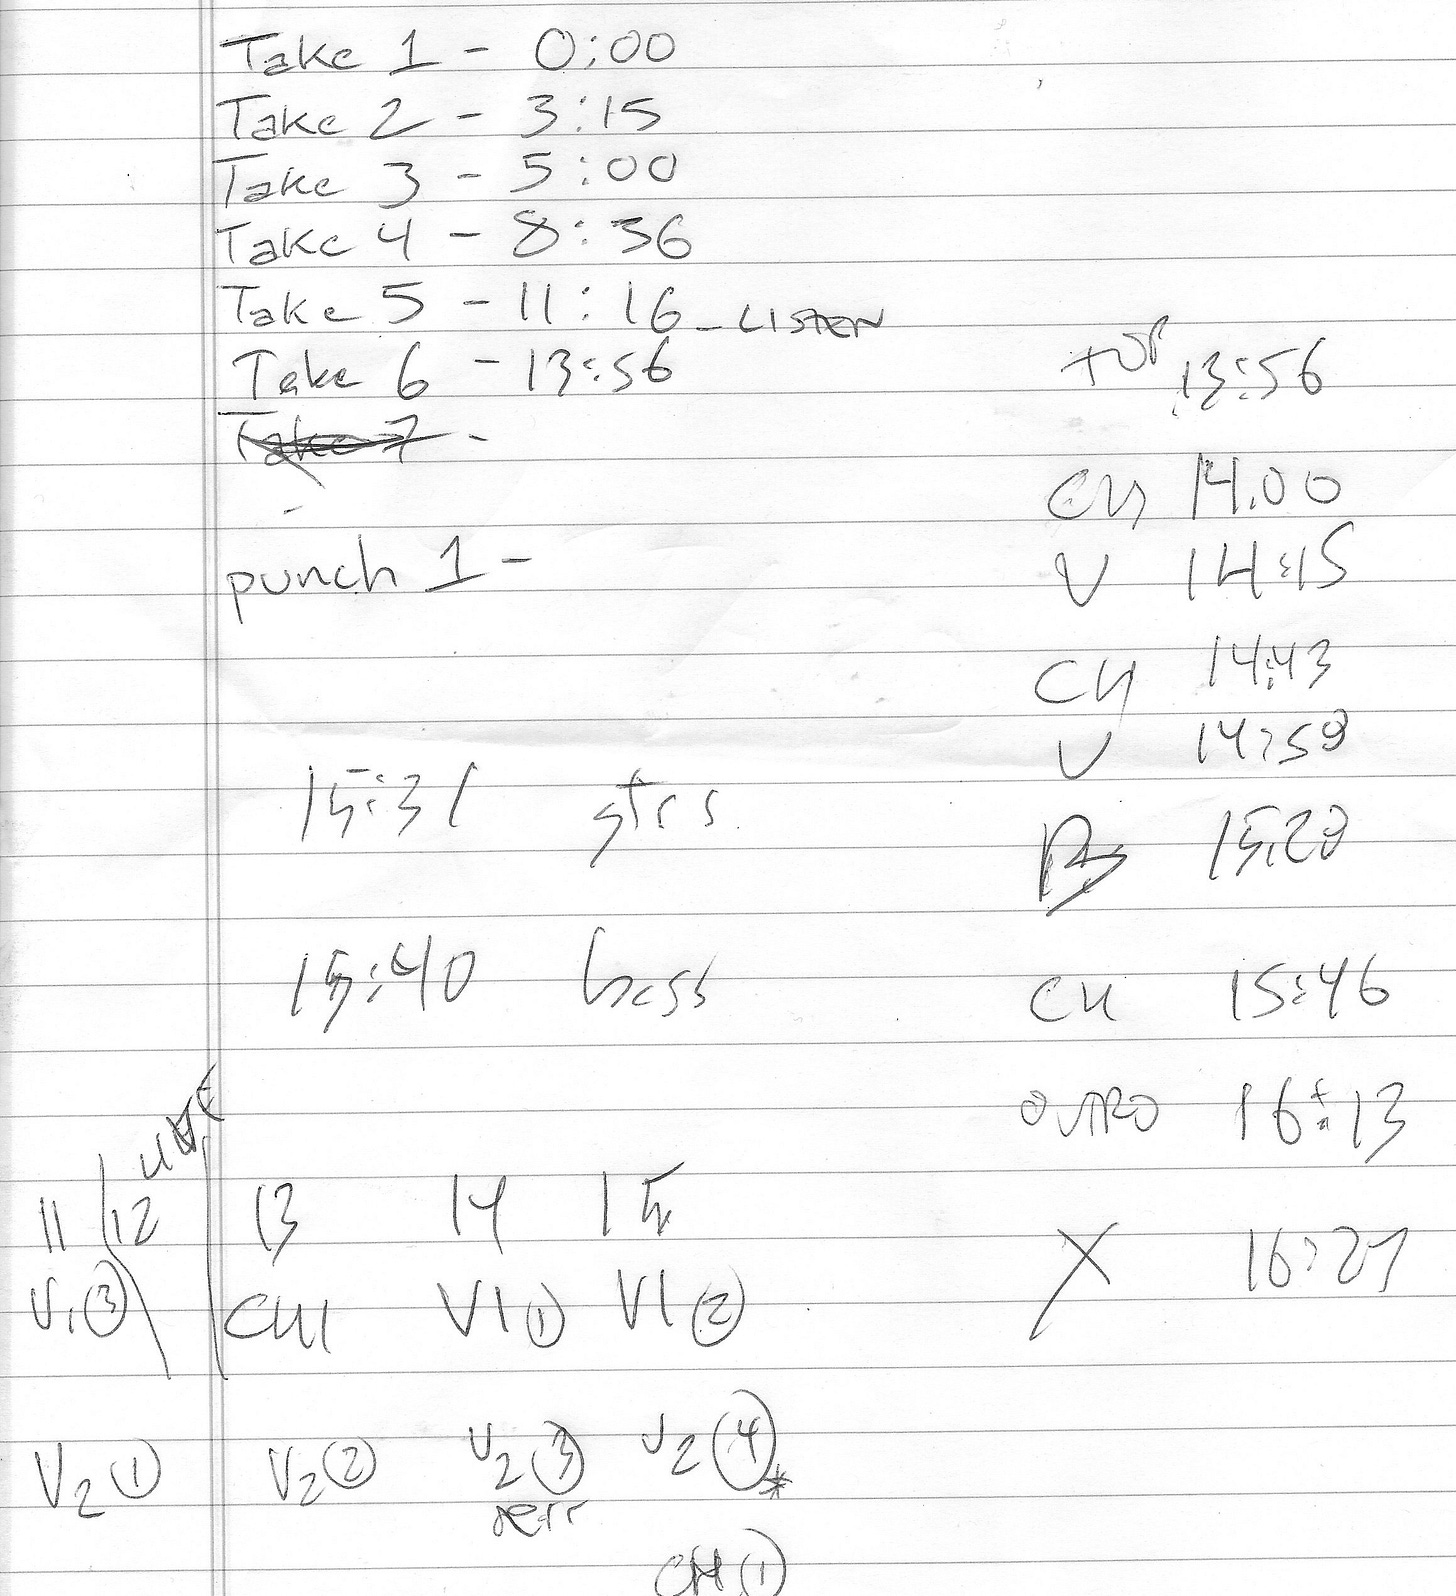 Take 1 - 0:00
Take 2 - 3:15
Take 3 - 5:00
Take 4 - 8:36
Take 5 - 11:16 - LISTEN
Take 6 - 13:56
Take 7 -
punch 1 -
TOP 13:56
CH 14:00
V 14:15
CH 14:43
V 14:58
B 15:28
CH 15:46
OUTRO 16:13
X 16:27
15:31 gtrs
15:40 bass
11 12 13 14 15
V1 ③ CH1 V1 ① V1 ②
V2 ① V2 ② V2 ③ V2 ④ *
CH ①